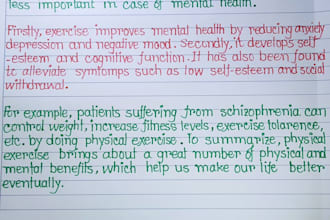 less important in case of mental health.
Firstly, exercise improves mental health by reducing anxiety
depression and negative mood. Secondly, it develops self
-esteem and cognitive function. It has also been found
to alleviate symtomps such as low self-esteem and social
withdrawal.
For example, patients suffering from schizophrenia can
control weight, increase fitness levels, exercise tolarence,
etc. by doing physical exercise. To summarize, physical
exercise brings about a great number of physical and
mental benefits, which help us make our life better
eventually.